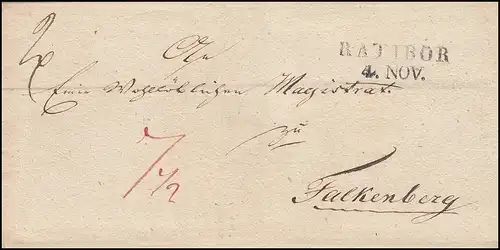 An
RATIBOR
4. NOV.
Einen Wohllöblichen Magistrat.
zu
7 1/2
Falkenberg